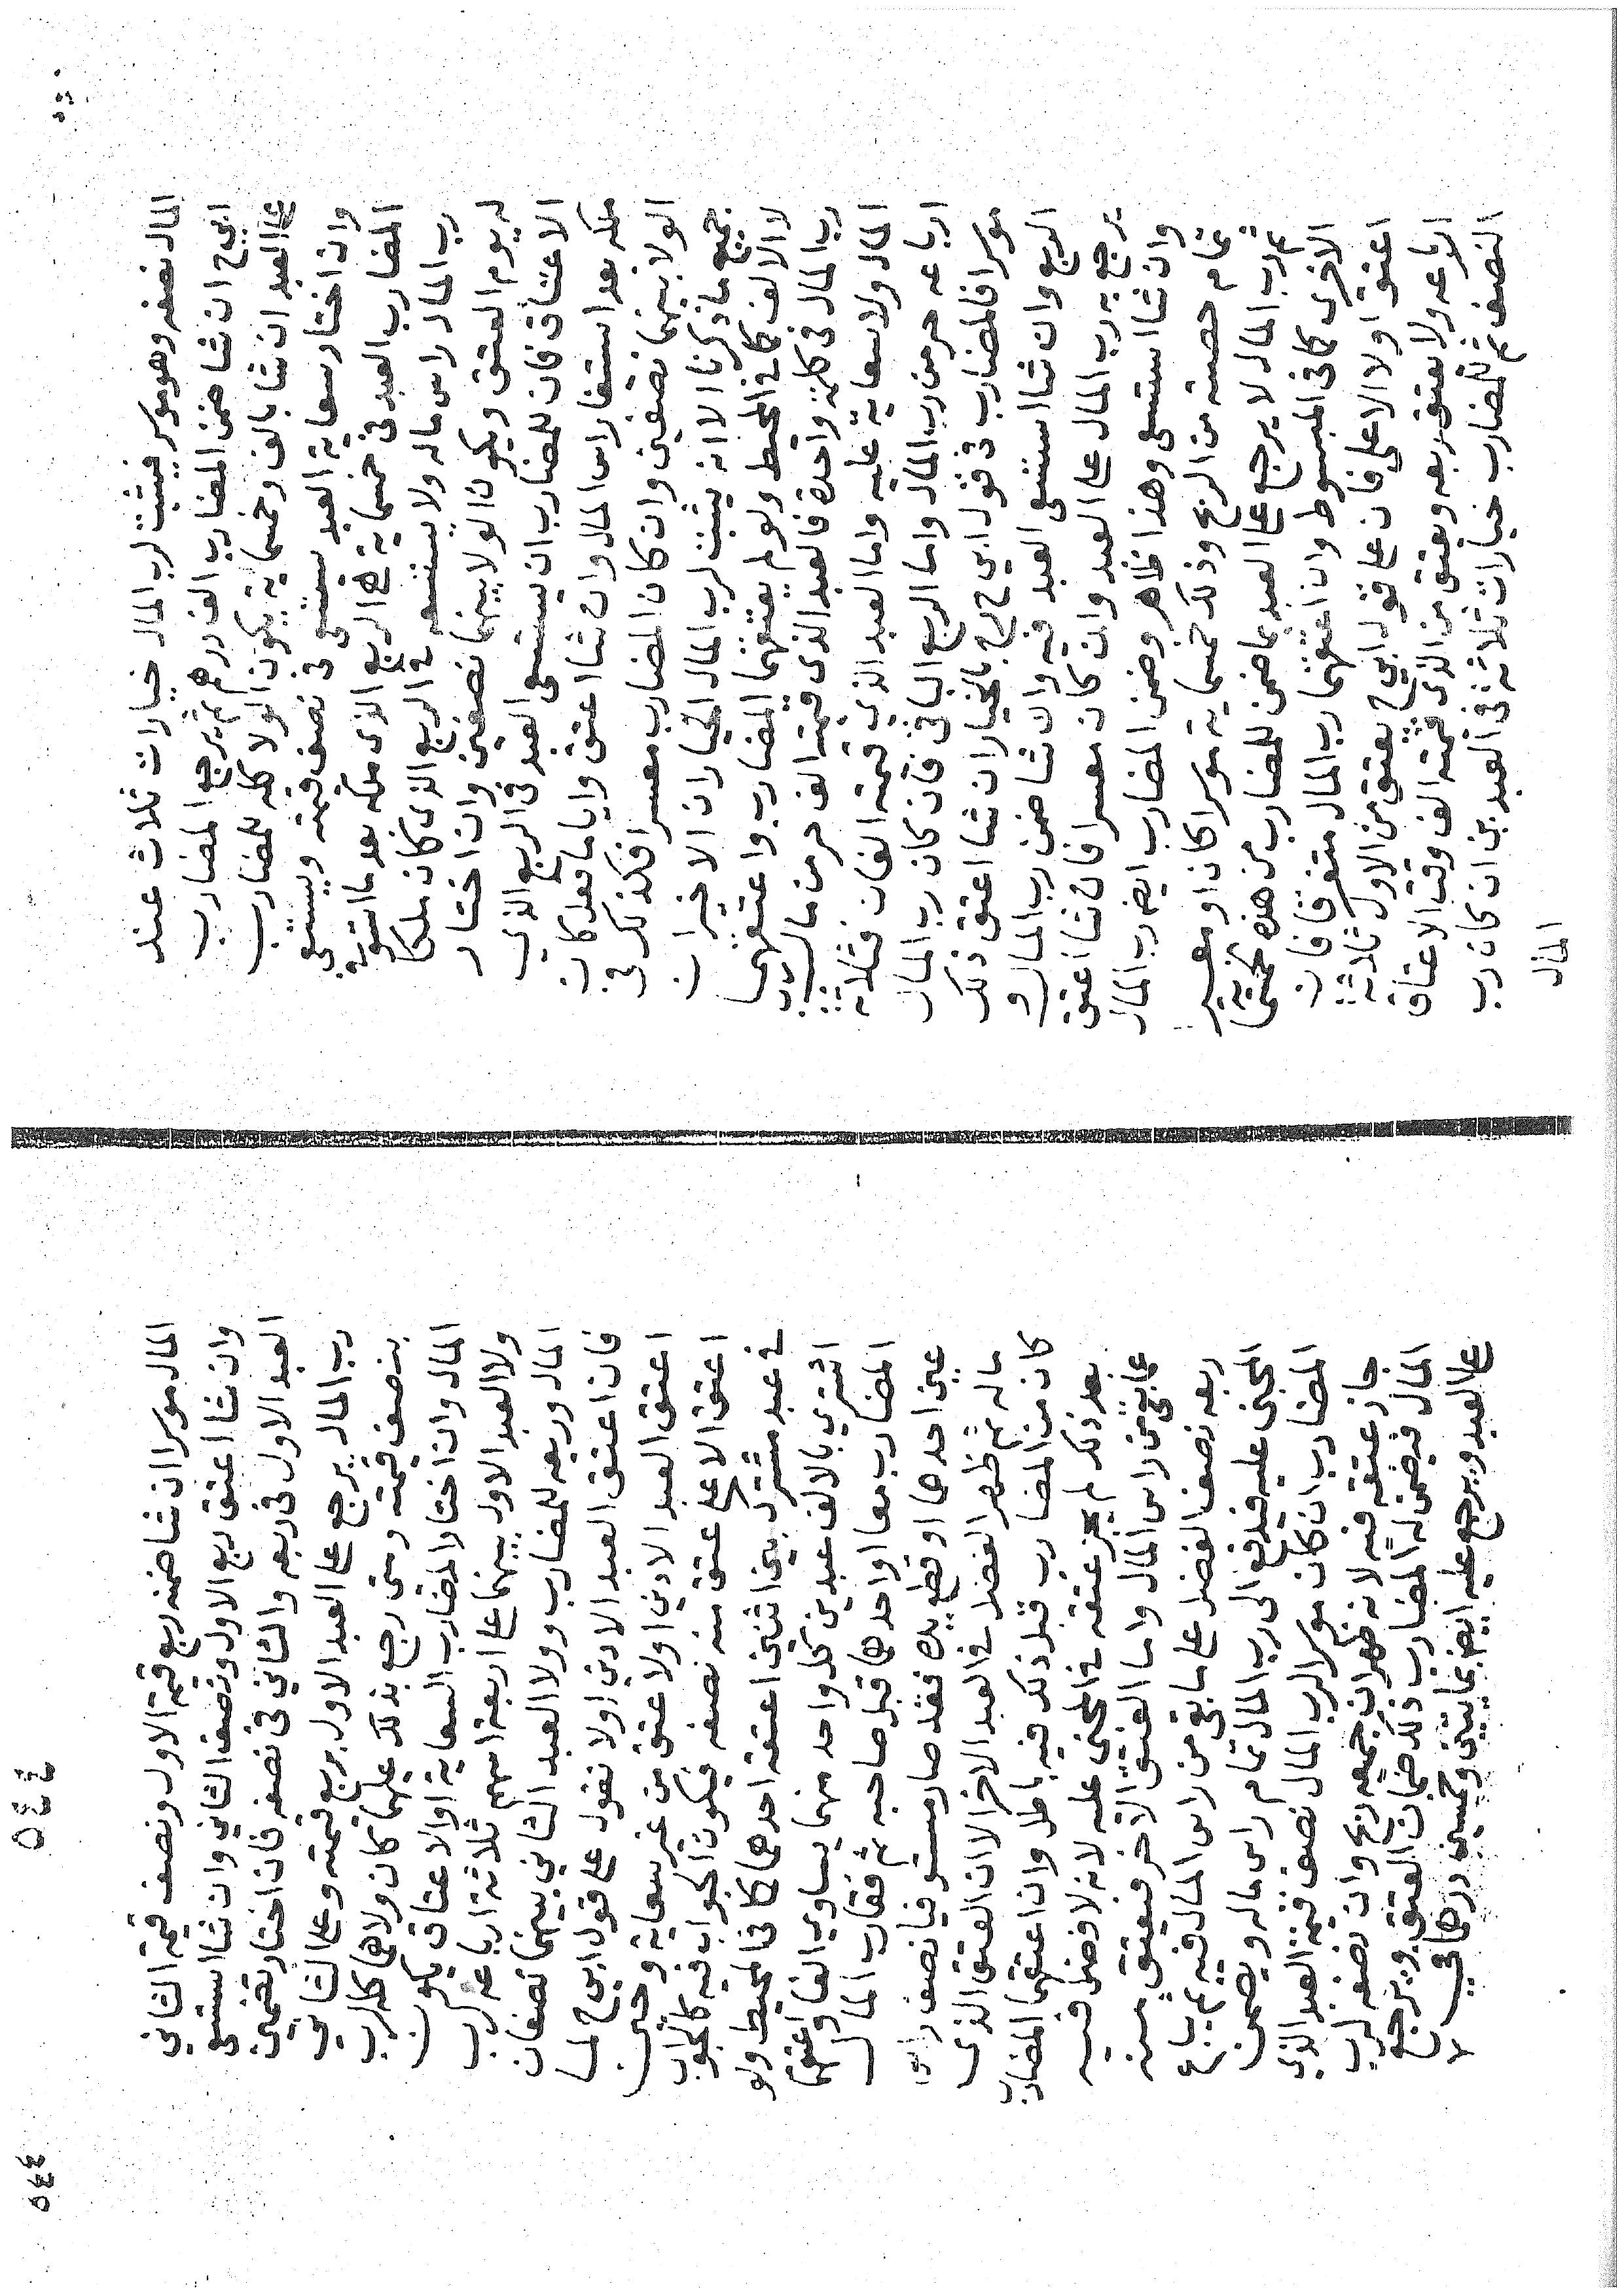 المال نصفه وهو موسر فيثبت لرب المال خيارات ثلاث عند
ابي ح ان شا ضمن المضارب الف درهم ثم يرجع المضارب
على العبد ان شا بالف وخمسماية يكون الولا كله للمضارب
وان اختار سعاية العبد يستسعى في نصف قيمته ويستسعى
المضارب العبد في خمسماية هي الربع الذى ملكه بعد ما استوفى
رب المال راس ماله ولا يستسعيه في الربع الذى كان ملكا
له يوم العتق ويكون الولا بينهما نصفين وان اختار
الاعتاق فان للمضارب ان يستسعى العبد في الربع الذي
ملكه بعد استيفا راس المال وان شا اعتق وايا ما فعل كان
الولا بينهما نصفين وان كان المضارب معسرا فكذلك في
جميع ما ذكرنا الا انه يثبت لرب المال الخياران الاخيران
لا الالف كما في المحيط ولو لم يعتقهما المضارب واعتقهما
رب المال في كلمة واحدة فالعبد الذى قيمته الف حر من مال رب
المال ولا سعاية عليه واما العبد الذي قيمته الفان فثلاثة
ارباعه حر من رب المال واما الربع الباقي فان كان رب المال
موسرا فالمضارب في قول ابي ح رح بالخيار ان شا اعتق ذلك
الربع وان شا استسعى العبد فيه وان شا ضمن رب المال و
يرجع به رب المال على العبد وان كان معسرا فان شا اعتق
وان شا استسعى وهذا ظاهر وضمن المضارب ايضا رب المال
تمام حصته من الربح وذلك خمسماية موسرا كان او معسرا
ثم رب المال لا يرجع على العبد بما ضمن للمضارب من هذه الخمسماية
الاخرى كما في المبسوط وان اعتقهما رب المال متفرقا فان
اعتق اولا الاعلى فان على قول ابي ح يعتق من الاول ثلاثة
ارباعه ولا يعتق ربعه ويعتق من الذى قيمته الف وقت الاعتاق
النصف ثم للمضارب خيارات ثلاثة في العبدين ان كان رب
المال
المال موسرا ان شا ضمنه ربع قيمة الاول ونصف قيمة الثاني
وان شا اعتق ربع الاول ونصف الثاني وان شا استسعى
العبد الاول في ربعه والثاني في نصفه فان اختار تضمين
رب المال يرجع على العبد الاول بربع قيمته وعلى الثاني
بنصف قيمته ومتى رجع بذلك عليهما كان ولاهما كله لرب
المال وان اختار المضارب السعاية او الاعتاق يكون
ولا العبد الاول بينهما على اربعة اسهم ثلاثة ارباعه لرب
المال وربعه للمضارب وولا العبد الثاني بينهما نصفان
فان اعتق العبد الادنى اولا نقول على قول ابي ح لما
اعتق العبد الادنى اولا عتق من غير سعاية وحين
اعتق الاعلى عتق منه نصفه فيكون الجواب فيه كالجواب
في عبد مشترك بين اثنين اعتقه احدهما كما في المحيط ولو
اشتري بالالف عبدين كل واحد منهما يساوي الفا واعتقهما
المضارب معا او احدهما قبل صاحبه ثم فقا رب المال
عين احدهما او قطع يده فقد صار مستوفيا نصف راس
ماله ثم ظهر الفضل في العبد الاخر الا ان العتق الذى
كان من المضارب قبل ذلك فيه باطل وان اعتقهما المضارب
بعد ذلك لم يجز عتقه في المجنى عليه لانه لا فضل فيه
عما بقى من راس المال واما العتق الاخر فيعتق منه
ربعه نصف الفضل على ما بقى من راس المال فيه ثم يباع
المجنى عليه فيدفع الى رب المال تمام راس ماله ويضمن
المضارب ان كان موسرا لرب المال نصف قيمة العبد الذى
جاز عتقه فيه لانه ظهر ان جميعه ربح وان نصفه لرب
المال فيضمن له المضارب ذلك ضمان العتق ويرجع
على العبد ويرجع عليه ايضا بمايتين وخمسين درهما في
٥٤٤